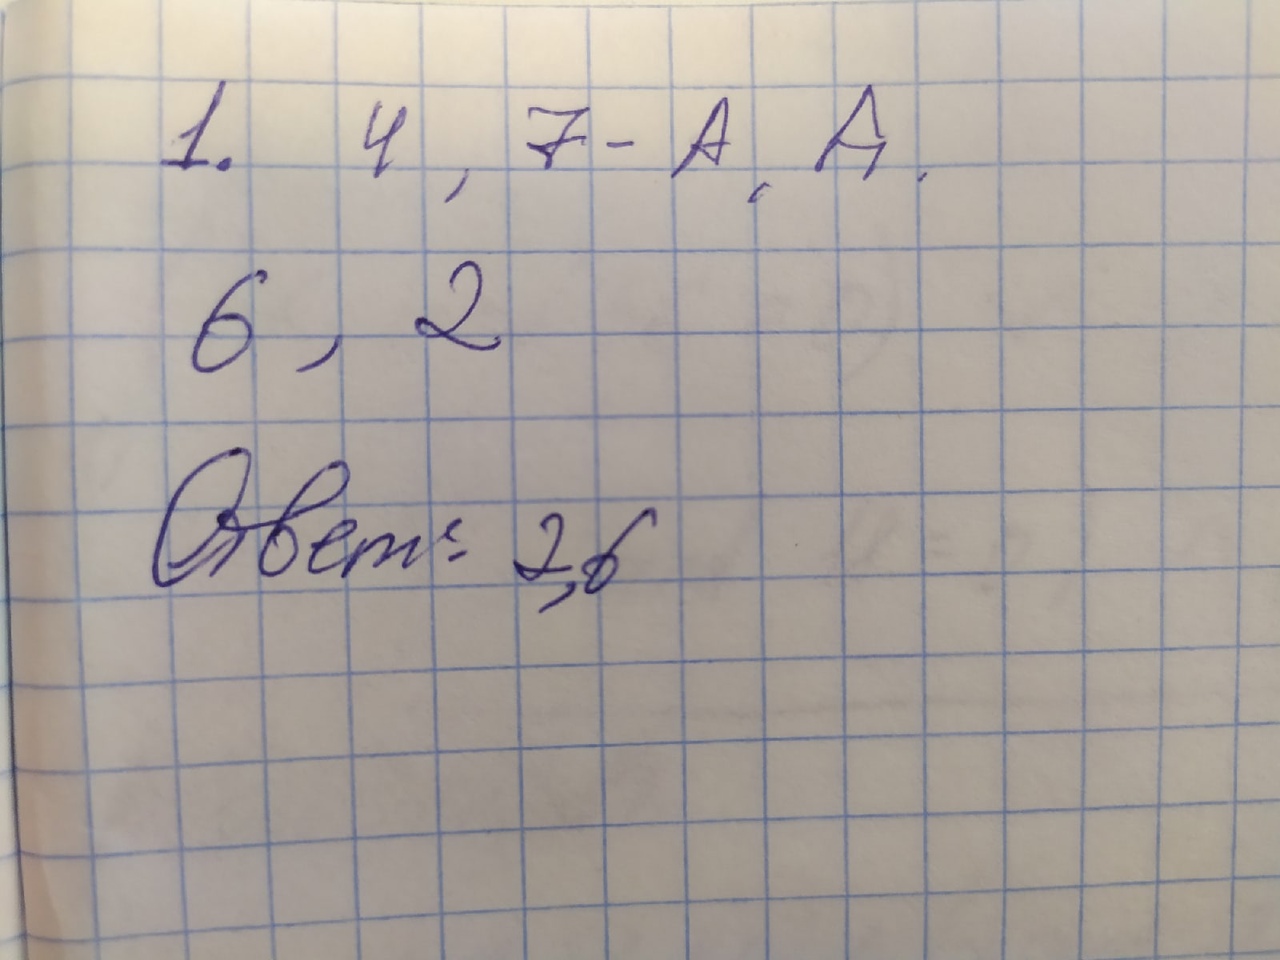 1. 4, 7 - А, Д.
6, 2
Ответ: 2,6